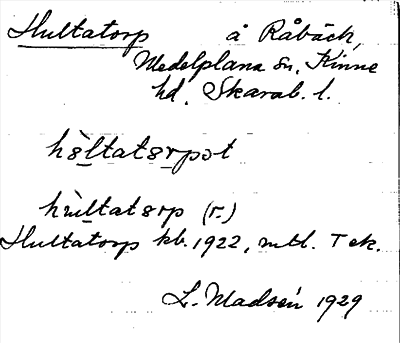 Hultatorp å Råbäck,
Medelplana sn. Kinne
hd. Skarab. l.
hòltatorpət
hùltatorp (r.)
Hultatorp kb. 1922, mtl. T ek.
L. Madsén 1929